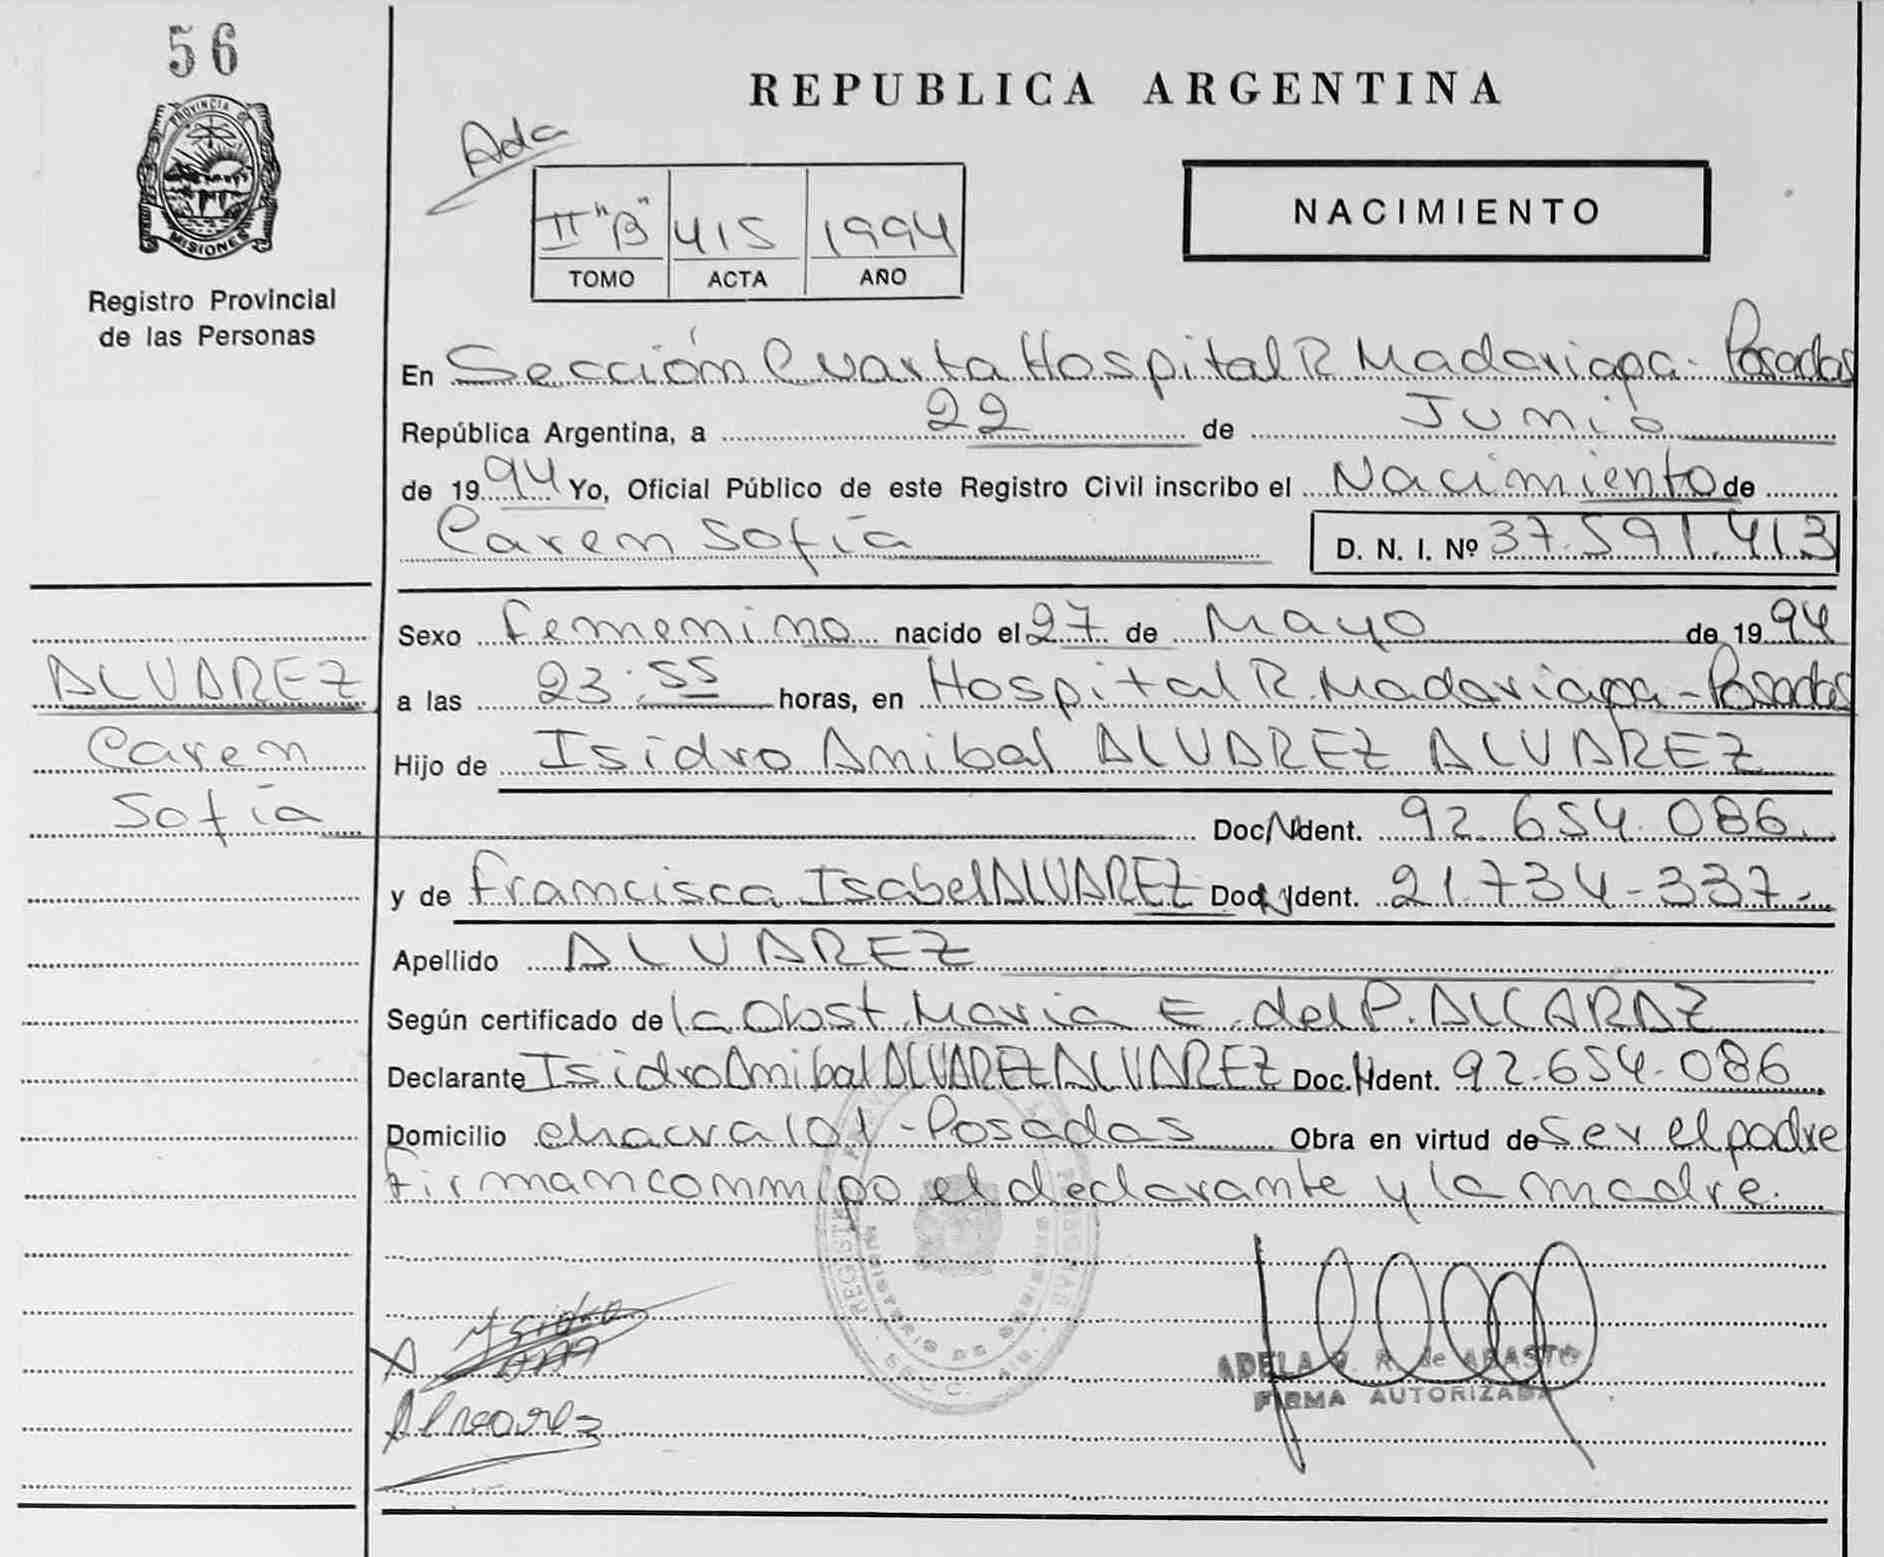 56
PROVINCIA DE
MISIONES
Registro Provincial
de las Personas
REPUBLICA ARGENTINA
Ada
II "B" 415 1994
TOMO ACTA AÑO
NACIMIENTO
En Sección Cuarta Hospital R Madariaga - Posadas
República Argentina, a 22 de Junio
de 1994 Yo, Oficial Público de este Registro Civil inscribo el Nacimiento de
Caren Sofía D. N. I. Nº 37.591.413
Sexo femenino nacido el 27 de Mayo de 1994
a las 23:55 horas, en Hospital R. Madariaga - Posadas
Hijo de Isidro Anibal ALVAREZ ALVAREZ
Doc/N Ident. 92.654.086.
y de Francisca Isabel ALVAREZ Doc N Ident. 21.734-337.-
Apellido ALVAREZ
Según certificado de la Obst. Maria E. del P. ALCARAZ
Declarante Isidro Anibal ALVAREZ ALVAREZ Doc. N Ident. 92.654.086
Domicilio chacra 101 - Posadas Obra en virtud de Ser el padre
Firman conmigo el declarante y la madre.
ALVAREZ
Caren
Sofía
Alvarez
ADELA R. de
FIRMA AUTORIZADA